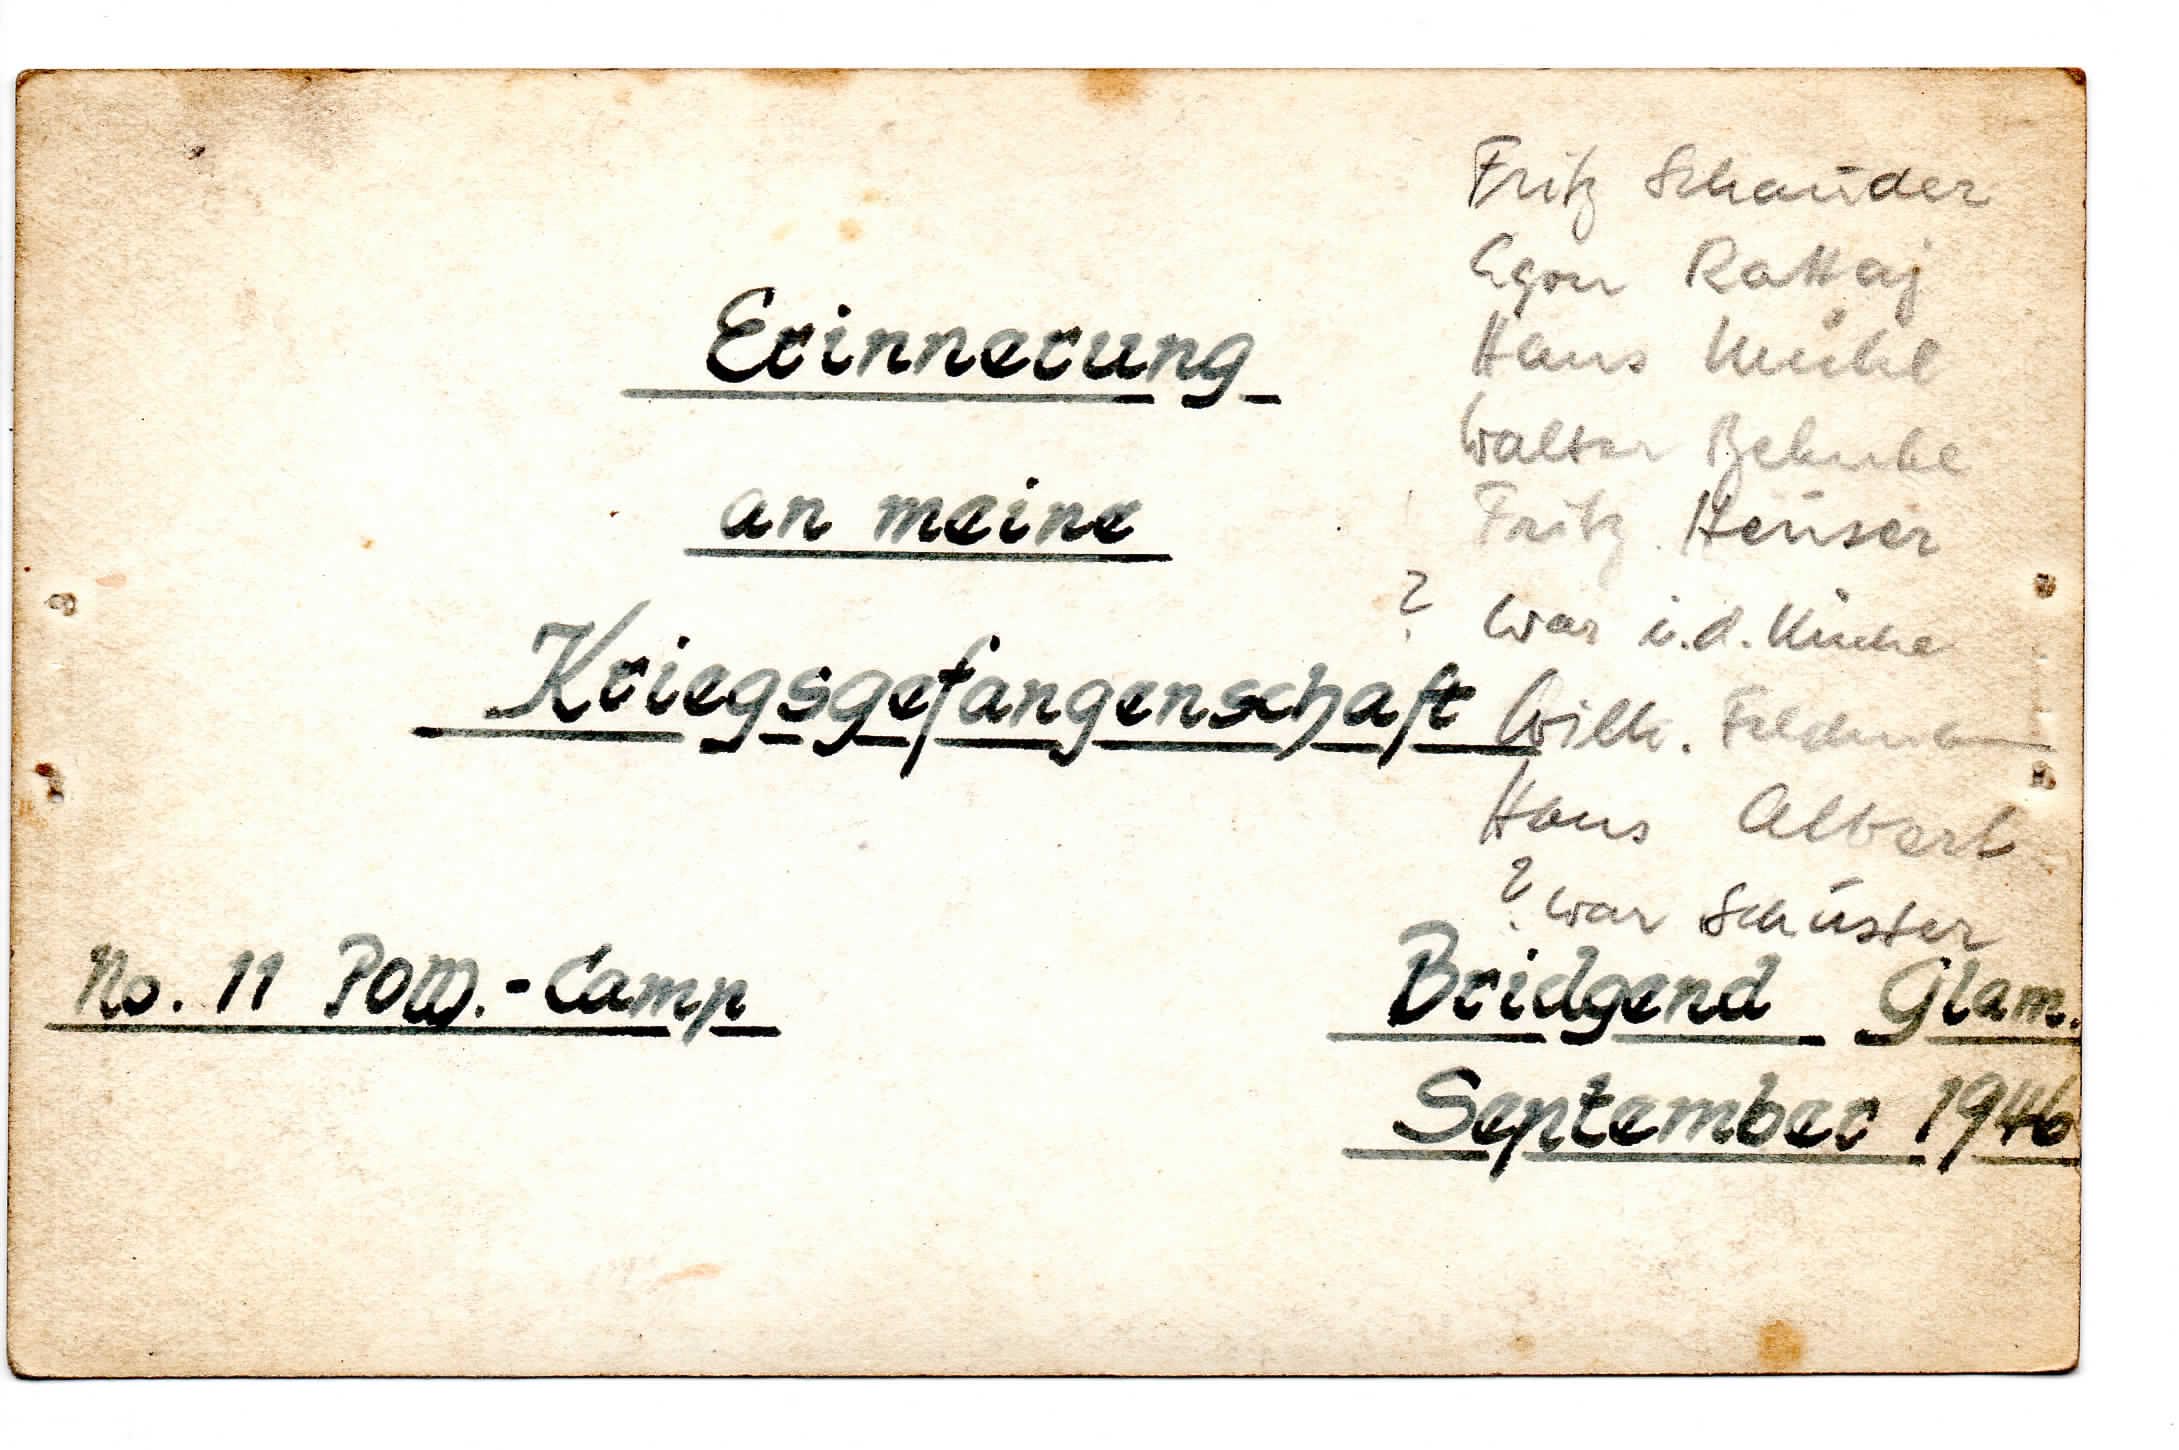 Erinnerung
an meine
Kriegsgefangenschaft
No. 11 POW.-Camp
Bridgend Glam.
September 1946
Fritz Schauder
Egon Rattay
Hans
Walter Behnke
Fritz Heuser
? war i.d. Küche
Wilh.
Hans Albert
? war Schuster